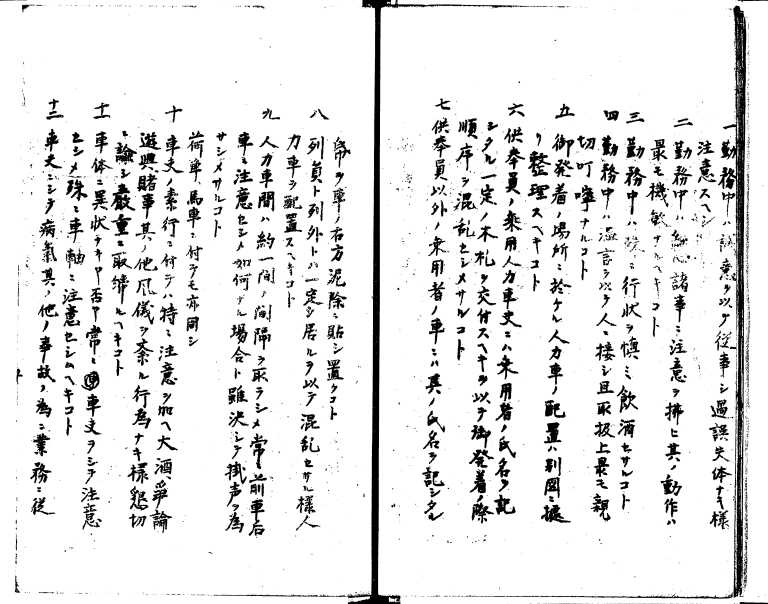 一 勤務中ハ誠意ヲ以テ従事シ過誤失体ナキ様
注意スヘシ
二 勤務中ハ細心諸事ニ注意ヲ拂ヒ其ノ動作ハ
最モ機敏ナルヘキコト
三 勤務中ハ殊ニ行状ヲ慎ミ飲酒セサルコト
四 勤務中ハ温言ヲ以テ人ニ接シ且取扱上最モ親
切叮嚀ナルコト
五 御発着ノ場所ニ於ケル人力車ノ配置ハ別図ニ據
リ整理スヘキコト
六 供奉員ノ乗用人力車夫ニハ乗用者ノ氏名ヲ記
シタル一定ノ木札ヲ交付スヘキヲ以テ御発着ノ際
順序ヲ混乱セシメサルコト
七 供奉員以外ノ乗用者ノ車ニハ其ノ氏名ヲ記シタル
帋ヲ車ノ右方泥除ニ貼シ置クコト
八 列員ト列外トハ一定シ居ルヲ以テ混乱セサル様人
力車ヲ配置スヘキコト
九 人力車間ハ約一間ノ間隔ヲ取ラシメ常ニ前車后
車ニ注意セシメ如何ナル場合ト雖決シテ掛声ヲ為
サシメサルコト
荷車、馬車ニ付テモ亦同シ
十 車夫ノ素行ニ付テハ特ニ注意ヲ加ヘ大酒、爭論
遊興賭事其ノ他風儀ヲ紊ル行為ナキ様懇切
ニ諭シ嚴重ニ取締ルヘキコト
十一 車体ニ異状ナキヤ否ヤ常ニ車夫ヲシテ注意
セシメ殊ニ車軸ニ注意セシムヘキコト
十二 車夫ニシテ病氣其ノ他ノ事故ノ為ニ業務ニ従